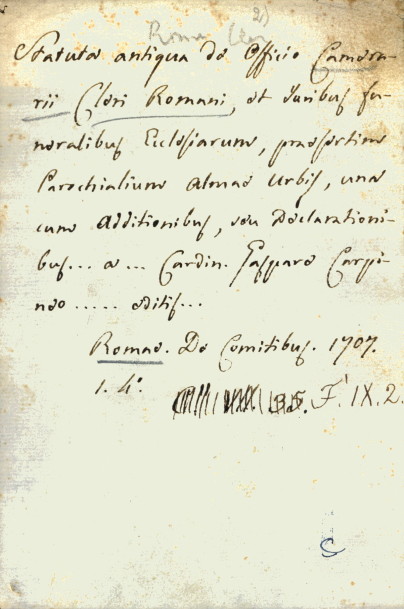 Roma
Statuta antiqua de Officio Camera-
rii Cleri Romani, et Juribus fu-
neralibus Ecclesiarum, praesertim
Parochialium Almae Urbis, una
cum Additionibus, seu Declarationi-
bus... a ... Cardin. Gaspare Carpi-
neo ..... editis...
Romae. De Comitibus. 1707.
1. 4°.
F. IX. 2.